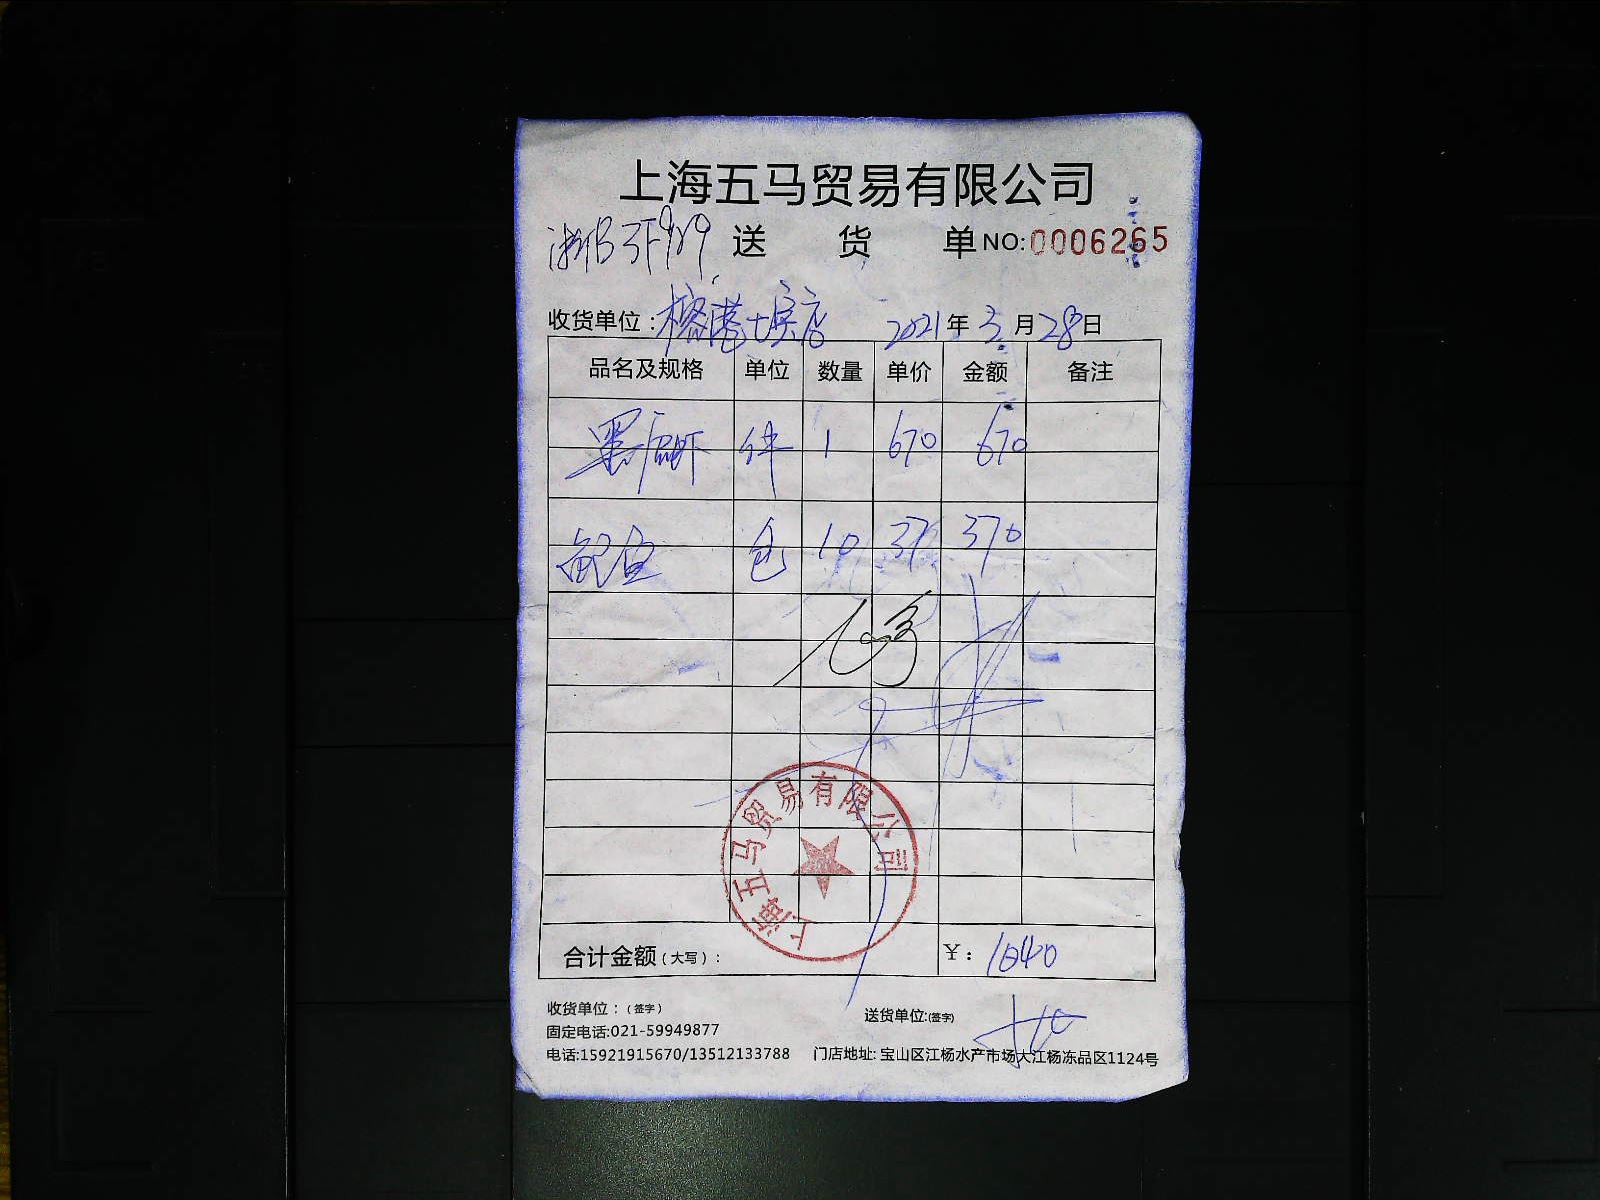 上海五马贸易有限公司
浙B3F929 送 货 单 NO:0006265
收货单位：榕港 店 2021年3月28日
品名及规格 单位 数量 单价 金额 备注
黑虎虾 件 1 670 670
鲍鱼 包 10 37 370
上海五马贸易有限公司
合计金额（大写）： ￥：1040
收货单位：（签字） 送货单位:(签字)
固定电话:021-59949877
电话:15921915670/13512133788 门店地址: 宝山区江杨水产市场大江杨冻品区1124号